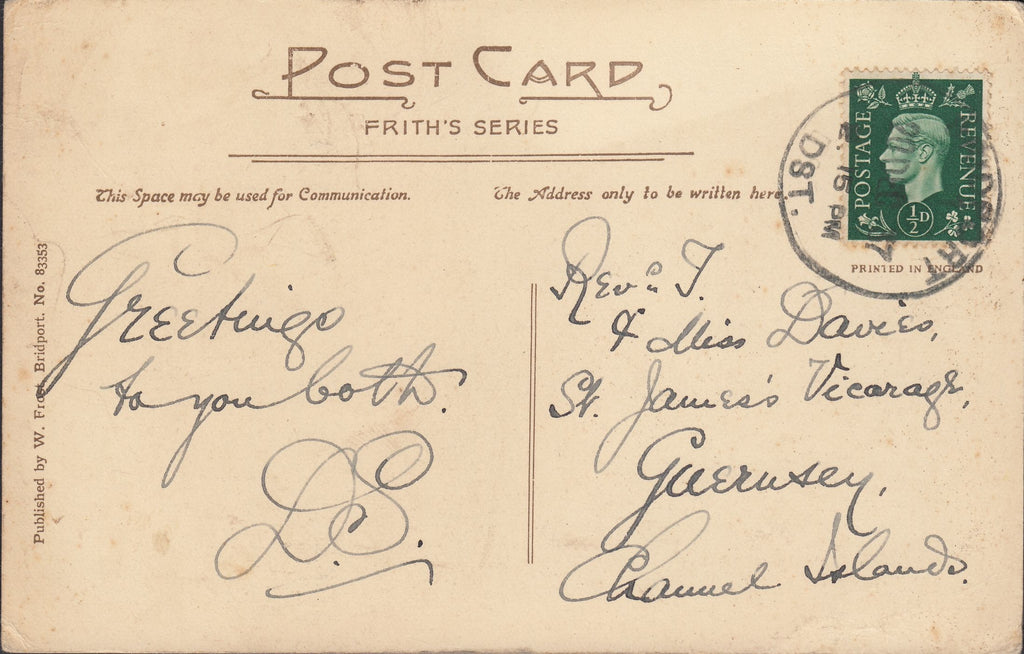 POST CARD
FRITH'S SERIES
This Space may be used for Communication.
The Address only to be written here.
POSTAGE
REVENUE
½D
15 PM
DST.
PRINTED IN ENGLAND
Published by W. Frost, Bridport. No. 83353
Greetings
to you both.
D.S.
Revd. T.
& Miss Davies,
St. James's Vicarage,
Guernsey,
Channel Islands.